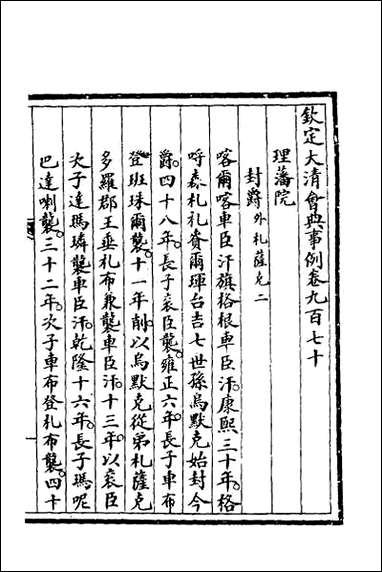 欽定大清會典事例卷九百七十
理藩院
封爵外札薩克二
喀爾喀車臣汗旗格根車臣汗。康熙三十年。格
哷森札札賚爾琿台吉七世孫烏默克始封今
爵。四十八年。長子袞臣襲。雍正六年。長子車布
登班珠爾襲。十一年。削。以烏默克從弟札薩克
多羅郡王垂札布兼襲車臣汗。十三年。以袞臣
次子達瑪璘襲車臣汗。乾隆十六年。長子瑪呢
巴達喇襲。三十二年。次子車布登札布襲。四十